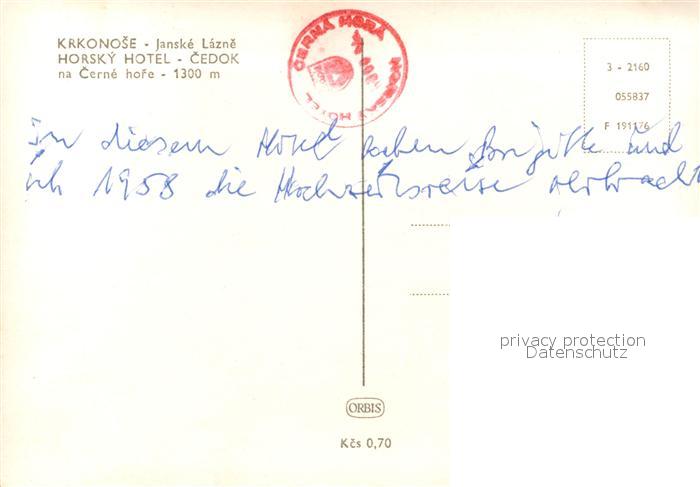 KRKONOŠE - Janské Lázně
HORSKÝ HOTEL - ČEDOK
na Černé hoře - 1300 m
ČERNÁ HORA
HORSKÝ HOTEL
3 - 2160
055837
F 191176
In diesem Hotel haben Brigitte und
ich 1958 die Hochzeitsreise verbracht
privacy protection
Datenschutz
ORBIS
Kčs 0,70